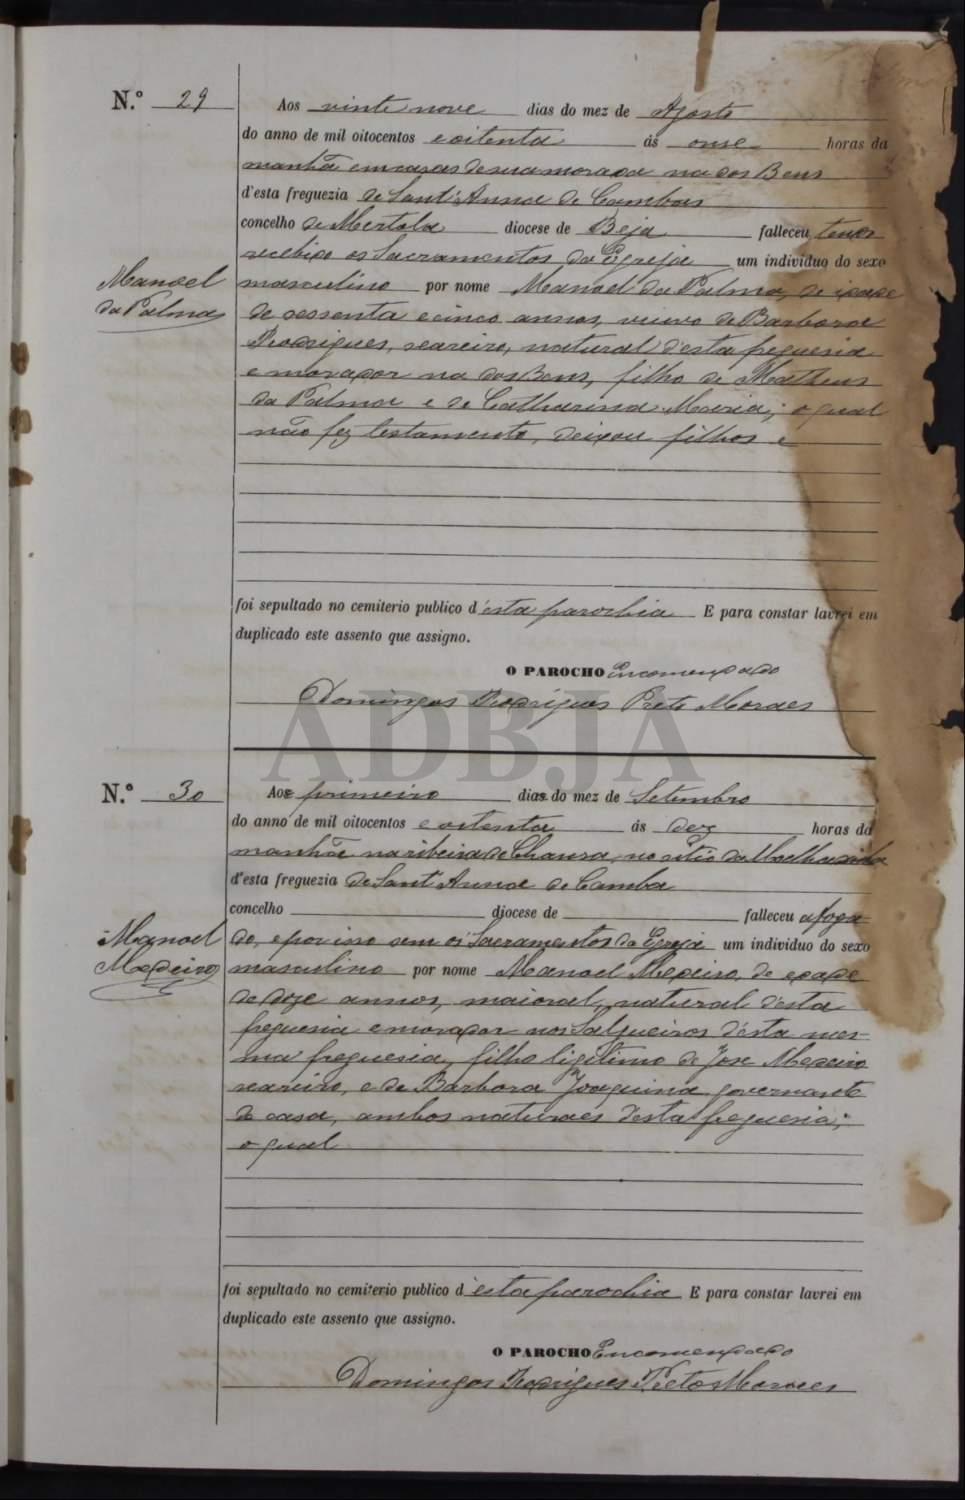 N.º 29
Aos vinte nove dias do mez de Agosto
do anno de mil oitocentos e oitenta ás onse horas da
manhã em casas de sua morada na dos Bens
d'esta freguezia de Sant'Anna de Cambas
concelho de Mertola diocese de Beja falleceu tendo
recebido os Sacramentos da Egreja um individuo do sexo
Manoel
da Palma
masculino por nome Manoel da Palma, de idade
de sessenta e cinco annos, viuvo de Barbora
Rodrigues, seareiro, natural d'esta freguesia
e morador na dos Bens, filho de Matheus
da Palma e de Catharina Maria; o qual
não fez testamento, deixou filhos e
foi sepultado no cemiterio publico d'esta parochia E para constar lavrei em
duplicado este assento que assigno.
O PAROCHO Encomendado
Domingos Rodrigues Preto Moraes
ADBJA
N.º 30
Aos primeiro dias do mez de Setembro
do anno de mil oitocentos e oitenta ás dez horas da
manhã na ribeira de Chansa, no sitio da
d'esta freguezia de Sant'Anna de Camba
concelho diocese de falleceu afoga-
do, e por isso sem os Sacramentos da Egreja um individuo do sexo
Manoel
Medeiro
masculino por nome Manoel Medeiro, de edade
de doze annos, maioral, natural d'esta
freguesia e morador nos Salgueiros d'esta mes-
ma freguesia, filho ligitimo de Jose Medeiro
seareiro, e de Barbora Joaquina governante
de casa, ambos naturaes d'esta freguesia;
o qual
foi sepultado no cemiterio publico d'esta parochia E para constar lavrei em
duplicado este assento que assigno.
O PAROCHO Encomendado
Domingos Rodrigues Preto Moraes